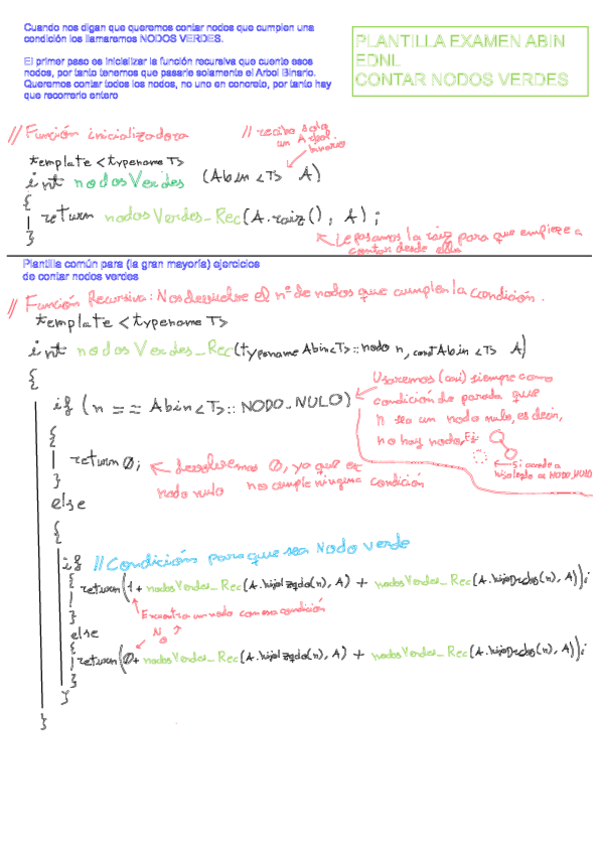 Cuando nos digan que queremos contar nodos que cumplen una
condición los llamaremos NODOS VERDES.
El primer paso es inicializar la función recursiva que cuente esos
nodos, por tanto tenemos que pasarle solamente el Arbol Binario.
Queremos contar todos los nodos, no uno en concreto, por tanto hay
que recorrerlo entero
PLANTILLA EXAMEN ABIN
EDNL
CONTAR NODOS VERDES
// Función inicializadora
// recibe solo
un Arbol
binario
template <typename T>
int nodosVerdes (Abin<T> A)
{
return nodosVerdes_Rec(A.raiz(), A);
}
Le pasamos la raiz para que empiece a
contar desde ella
Plantilla común para (la gran mayoría) ejercicios
de contar nodos verdes
// Función Recursiva: Nos devuelve el nº de nodos que cumplen la condición.
template <typename T>
int nodosVerdes_Rec(typename Abin<T>::nodo n, const Abin<T> A)
{
if (n == Abin<T>::NODO_NULO)
Usaremos (casi) siempre como
condición de parada que
n sea un nodo nulo, es decir,
no hay nodo, Ej:
{
return 0;
}
Devolveremos 0, ya que el
nodo nulo no cumple ninguna condición
Si accede a
hijoIzqdo es NODO_NULO
else
{
if // Condición para que sea Nodo Verde
{
return(1+ nodosVerdes_Rec(A.hijoIzqdo(n), A) + nodosVerdes_Rec(A.hijoDrcho(n), A));
}
Encuentra un nodo con esa condición
else
No
{
return(0+ nodosVerdes_Rec(A.hijoIzqdo(n), A) + nodosVerdes_Rec(A.hijoDrcho(n), A));
}
}
}